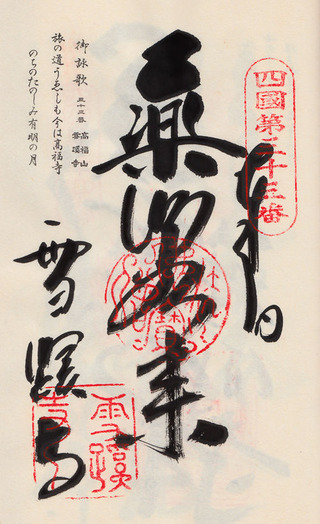 四國第三十三番
薬師如来
御詠歌
三十三番 高福山
雪蹊寺
旅の道うゑしも今は高福寺
のちのたのしみ有明の月
雪蹊寺
雪蹊寺